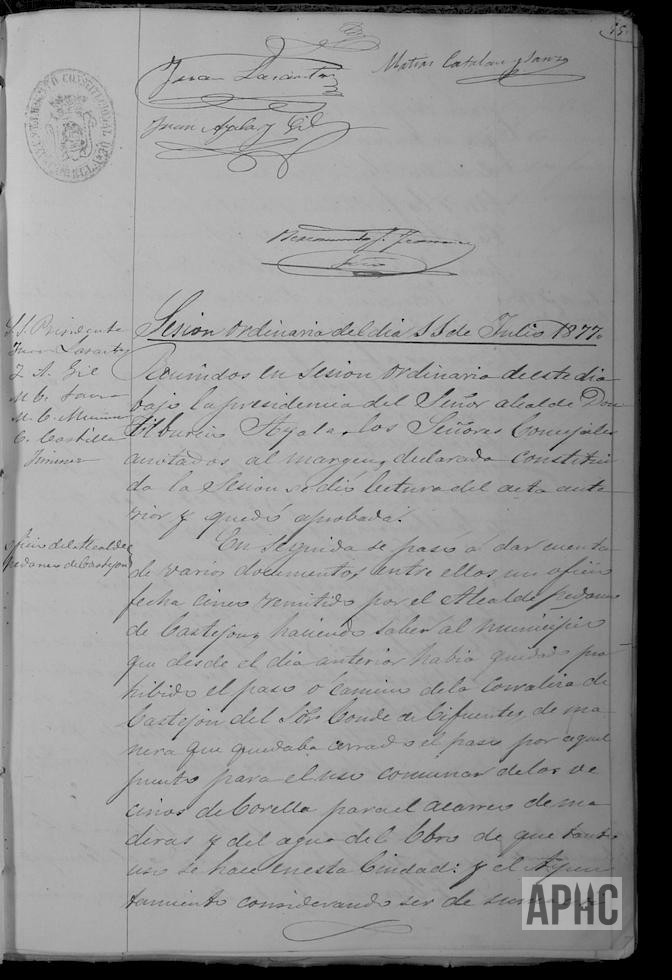 15
Juan Lasanta
Matias Catalan y Sanz
Juan Ayala y Gil
AYUNTAMIENTO CONSTITUCIONAL DE
Srio
Sesion ordinaria del dia 11 de Julio 1877.
S.S. Presidente
Juan Lasanta
J. A. Gil
M. C. Sanz
M. C.
C. Castilla
Jimenez
Reunidos en sesion ordinaria de este dia
bajo la presidencia del Señor alcalde Don
Tiburcio Ayala, los Señores Concejales
anotados al margen, declarada constitui
da la Sesion se dió lectura del acta ante
rior y quedó aprobada.
oficio del Alcalde
pedaneo de Castejon
En seguida se pasó á dar cuenta
de varios documentos, entre ellos un oficio
fecha cinco remitido por el Alcalde pedaneo
de Castejon, haciendo saber al municipio
que desde el dia anterior habia quedado pro
hibido el paso ó camino de la Corraliza de
Castejon del Sõr. Conde de Cifuentes, de ma
nera que quedaba cerrado el paso por aquel
punto para el uso comunar de los ve
cinos de Corella para el acarreo de ma
deras y del agua del Ebro de que tanto
uso se hace en esta Ciudad: y el Ayun
tamiento considerando ser de
APHC